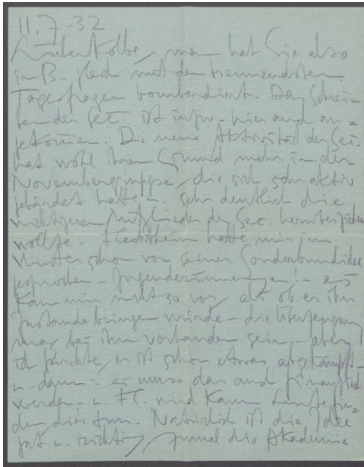 11.7.32
Lieber Kolbe, man hat Sie also
in B. gleich mit den brennendsten
Tagesfragen bombardiert. Das Schrei-
ben der ist hier auch an-
gekommen. Die neue Aktivität der Sec.
hat wohl ihren Grund mehr in der
Novembergruppe, die sich sehr aktiv
gebärdet hatte u. sehr deutlich die
wichtigen Mitglieder der Sec. herüberziehen
wollte. Flechtheim hatte mir im
Winter schon von seiner
gesprochen - Jugenderinnerungen! - es
kam mir nicht so vor, als ob er ihn
zustande bringen würde - die Überzeugung
mag bei ihm vorhanden sein - aber
ich fürchte, er ist schon etwas abgekämpft
u. dann - es muss dann auch finanziert
werden u. wird kaum Leute fin-
den die es tun. Natürlich ist die Idee
gut u. richtig, zumal die Akademie